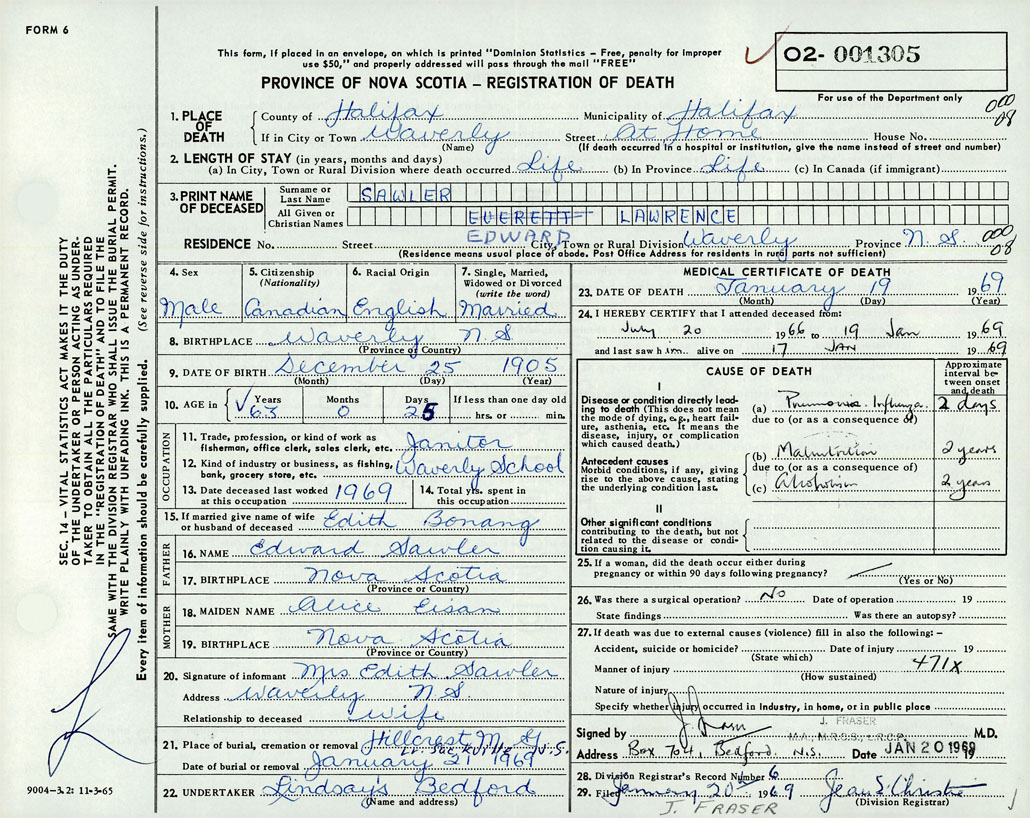 FORM 6
This form, if placed in an envelope, on which is printed "Dominion Statistics – Free, penalty for improper
use $50," and properly addressed will pass through the mail "FREE"
O2- 001305
PROVINCE OF NOVA SCOTIA – REGISTRATION OF DEATH
For use of the Department only
1. PLACE OF DEATH County of Halifax Municipality of Halifax 000 08
If in City or Town Waverly Street At Home House No.
(Name) (If death occurred in a hospital or institution, give the name instead of street and number)
2. LENGTH OF STAY (in years, months and days)
(a) In City, Town or Rural Division where death occurred Life (b) In Province Life (c) In Canada (if immigrant)
3. PRINT NAME OF DECEASED Surname or Last Name SAWLER
All Given or Christian Names EVERETT LAWRENCE
EDWARD
RESIDENCE No. Street City, Town or Rural Division Waverly Province N.S. 000 08
(Residence means usual place of abode. Post Office Address for residents in rural parts not sufficient)
4. Sex
Male
5. Citizenship
(Nationality)
Canadian
6. Racial Origin
English
7. Single, Married,
Widowed or Divorced
(write the word)
Married
8. BIRTHPLACE Waverly N.S.
(Province or Country)
9. DATE OF BIRTH December 25 1905
(Month) (Day) (Year)
10. AGE in Years Months Days If less than one day old
63 0 25 hrs. or min.
OCCUPATION
11. Trade, profession, or kind of work as
fisherman, office clerk, sales clerk, etc. Janitor
12. Kind of industry or business, as fishing,
bank, grocery store, etc. Waverly School
13. Date deceased last worked
at this occupation 1969
14. Total yrs. spent in
this occupation
15. If married give name of wife
or husband of deceased Edith Bonang
FATHER
16. NAME Edward Sawler
17. BIRTHPLACE Nova Scotia
(Province or Country)
MOTHER
18. MAIDEN NAME Alice Eisan
19. BIRTHPLACE Nova Scotia
(Province or Country)
20. Signature of informant Mrs Edith Sawler
Address Waverly N.S.
Relationship to deceased Wife
21. Place of burial, cremation or removal Hillcrest M. G.
Lr. Sackville N.S.
Date of burial or removal January 21 1969
22. UNDERTAKER Lindsay's Bedford
(Name and address)
MEDICAL CERTIFICATE OF DEATH
23. DATE OF DEATH January 19 1969
(Month) (Day) (Year)
24. I HEREBY CERTIFY that I attended deceased from:
July 20 1966 to 19 Jan 1969
and last saw him alive on 17 JAN 1969
CAUSE OF DEATH
Approximate
interval be-
tween onset
and death
I
Disease or condition directly lead-
ing to death (This does not mean
the mode of dying, e.g., heart fail-
ure, asthenia, etc. It means the
disease, injury, or complication
which caused death.)
(a) Pneumonia Influenza 2 days
due to (or as a consequence of)
Antecedent causes
Morbid conditions, if any, giving
rise to the above cause, stating
the underlying condition last.
(b) Malnutrition 2 years
due to (or as a consequence of)
(c) Alcoholism 2 years
II
Other significant conditions
contributing to the death, but not
related to the disease or condi-
tion causing it.
25. If a woman, did the death occur either during
pregnancy or within 90 days following pregnancy?
(Yes or No)
26. Was there a surgical operation? No Date of operation 19
State findings Was there an autopsy?
27. If death was due to external causes (violence) fill in also the following: –
Accident, suicide or homicide? Date of injury 19
(State which)
471X
Manner of injury
(How sustained)
Nature of injury
Specify whether injury occurred in Industry, in home, or in public place
J. FRASER
Signed by J. Fraser M.A., M.R.C.S., L.R.C.P. M.D.
Address Box 704, Bedford. N.S. Date JAN 20 1969 19
28. Division Registrar's Record Number 6
29. Filed January 20 1969 Jean S. Christie
(Division Registrar)
J. FRASER
SEC. 14 – VITAL STATISTICS ACT MAKES IT THE DUTY
OF THE UNDERTAKER OR PERSON ACTING AS UNDER-
TAKER TO OBTAIN ALL THE PARTICULARS REQUIRED
IN THE "REGISTRATION OF DEATH" AND TO FILE THE
SAME WITH THE DIVISION REGISTRAR WHO SHALL ISSUE THE BURIAL PERMIT.
WRITE PLAINLY WITH UNFADING INK. THIS IS A PERMANENT RECORD.
Every item of information should be carefully supplied. (See reverse side for instructions.)
9004-3.2: 11-3-65